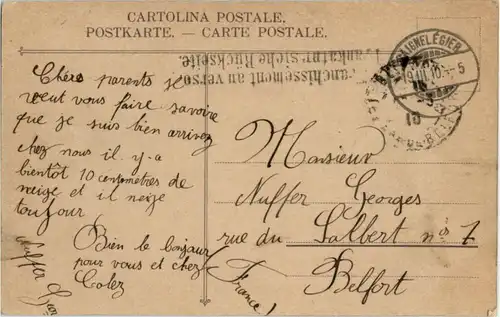 CARTOLINA POSTALE.
POSTKARTE. — CARTE POSTALE.
anchissement au verso
ankatur siehe Rückseite.
SAIGNELÉGIER
Chérs parents je
veut vous faire savoire
que je suis bien arrivez
chez nous il y-a
bientôt 10 centimètres de
neige et il neige
toujour
Bien le bonjour
pour vous et chez
Colez
Nuffer
Monsieur
Nuffer Georges
rue du Salbert nos 7
Belfort
(France)